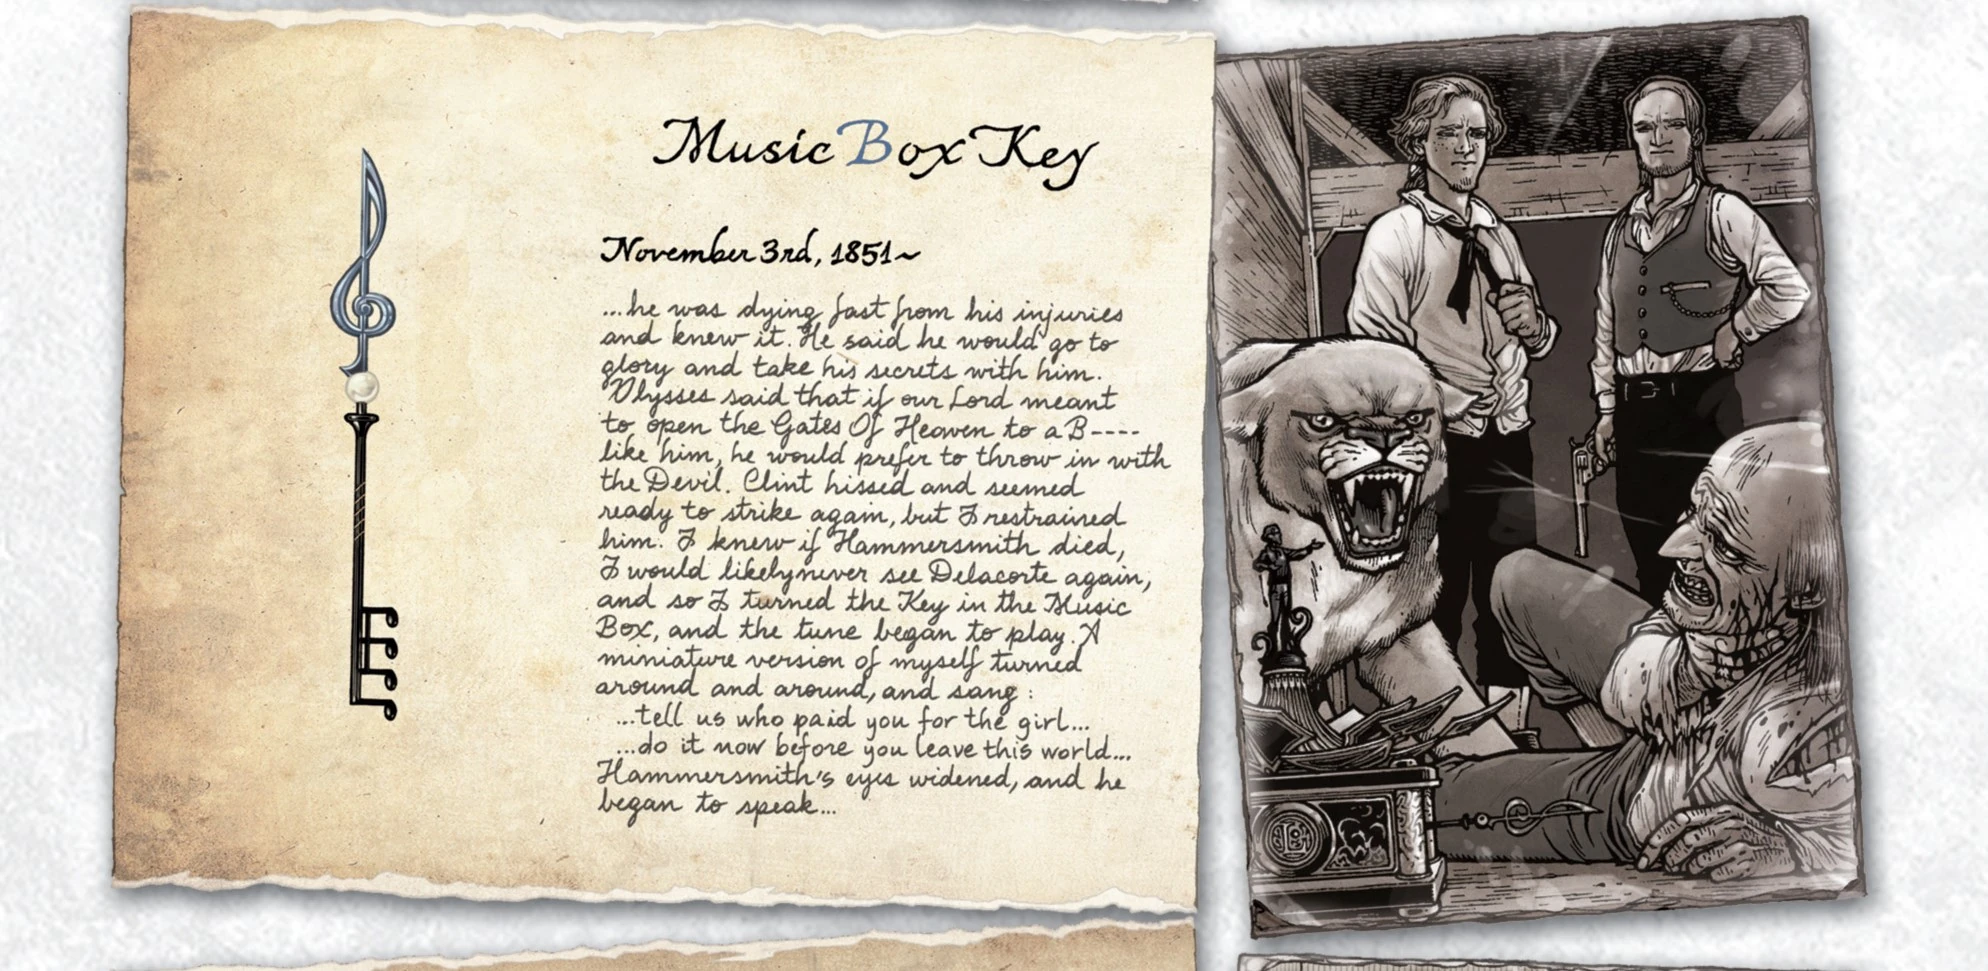 Music Box Key
November 3rd, 1851~
...he was dying fast from his injuries
and knew it. He said he would go to
glory and take his secrets with him.
Ulysses said that if our Lord meant
to open the Gates Of Heaven to a B----
like him, he would prefer to throw in with
the Devil. Clint hissed and seemed
ready to strike again, but I restrained
him. I knew if Hammersmith died,
I would likely never see Delacorte again,
and so I turned the Key in the Music
Box, and the tune began to play. A
miniature version of myself turned
around and around, and sang :
...tell us who paid you for the girl...
...do it now before you leave this world...
Hammersmith's eyes widened, and he
began to speak...